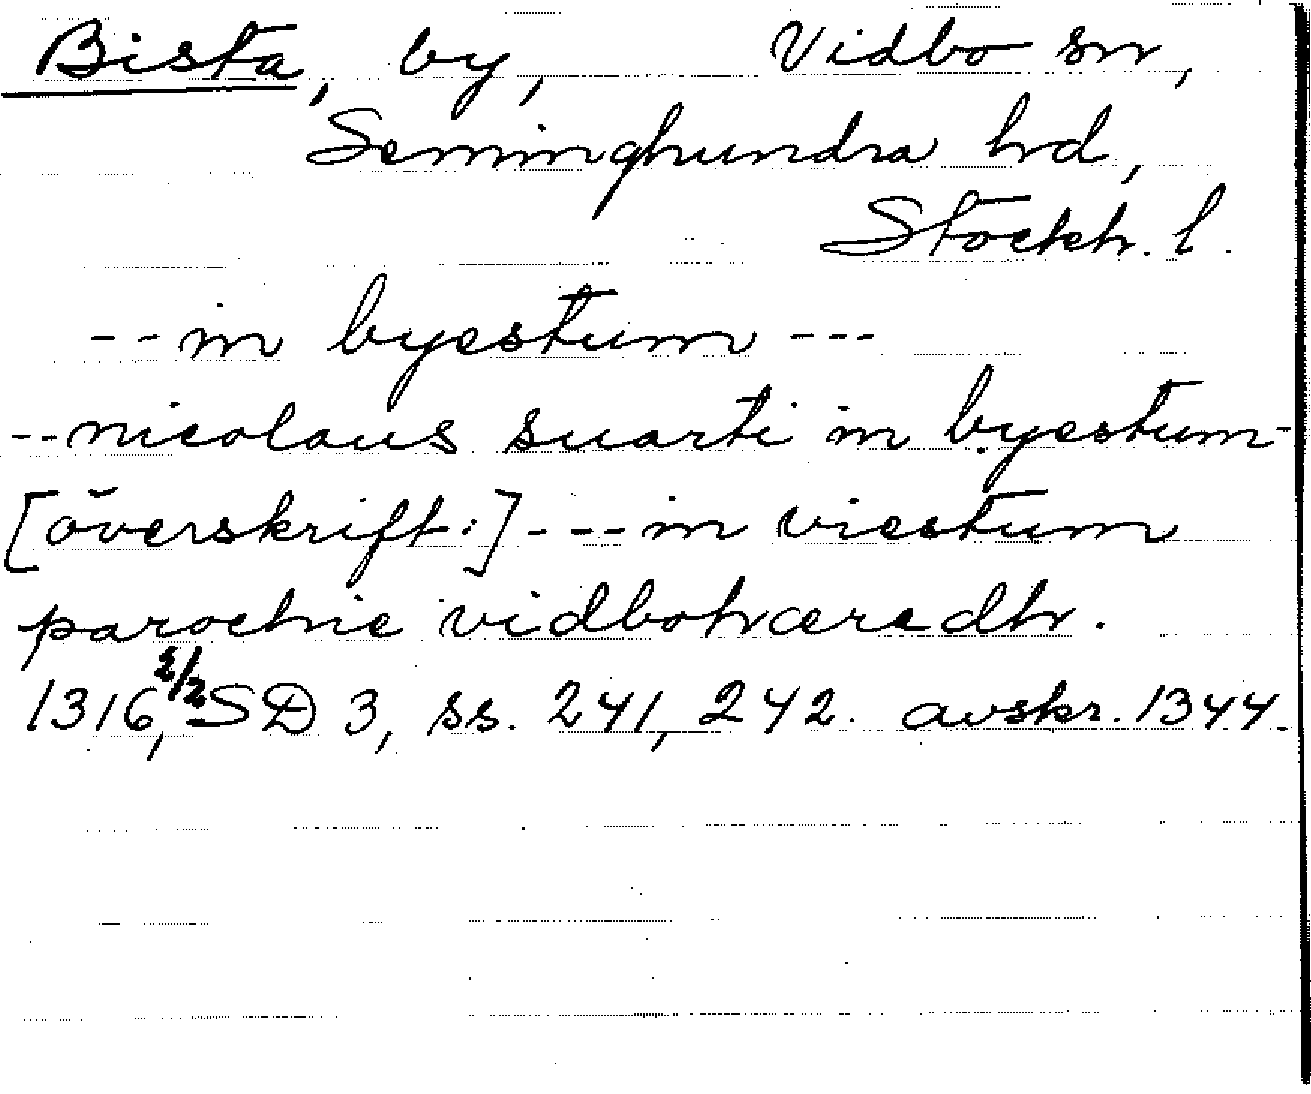 Bista, by, Vidbo sn,
Seminghundra hd,
Stockh. l.
-- in byestum ---
-- nicolaus suarti in byestum -
[överskrift:] --- in viestum
parochie vidbohæredh.
1316, 2/2 SD 3, ss. 241, 242. avskr. 1344.